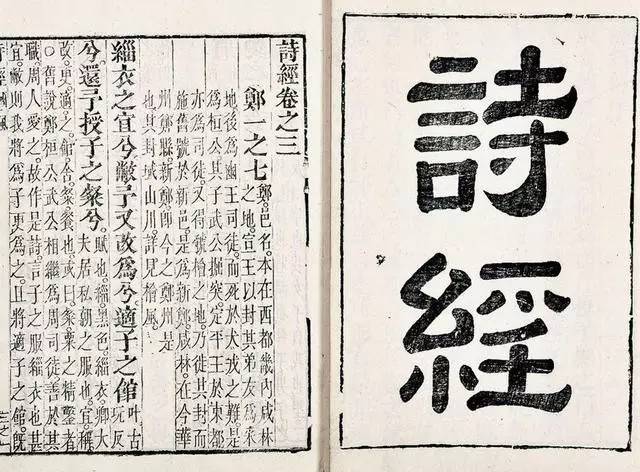 詩經
詩經卷之三
鄭一之七
鄭。邑名。本在西都畿內咸林
之地。宣王以封其弟友為采
地。後為幽王司徒。而死於犬戎之難。是
為桓公。其子武公掘突。定平王於東都。
亦為司徒。又得虢檜之地。乃徙其封。而
施舊號於新邑。是為新鄭。咸林。在今華
州鄭縣。新鄭。即今之鄭州是
也。其封域山川。詳見檜風。
緇衣之宜兮。敝予又改為兮。適子之館
叶古
玩反
兮。還予授子之粲兮。
賦也。緇。黑色。緇衣。卿大
夫居私朝之服也。宜。稱。
改。更。適。之。館。舍。粲。餐也。或曰粲。粟之精鑿者。
○舊說。鄭桓公武公。相繼為周司徒。善於其
職。周人愛之。故作是詩。言子之服緇衣也甚
宜。敝。則我將為子更為之。且將適子之館。既
詩經國風